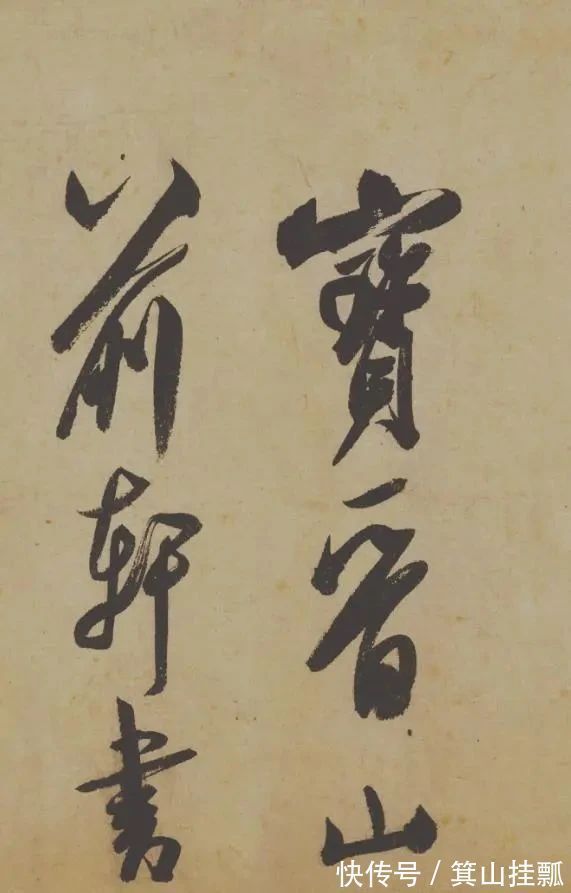 寶晉山
前軒書
快传号 / 箕山挂瓢